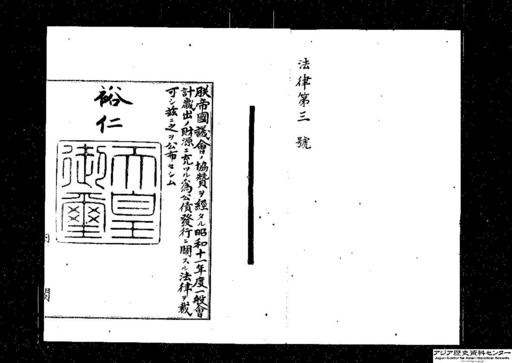 法律第三號
朕帝國議會ノ協贊ヲ經タル昭和十一年度一般會
計歲出ノ財源ニ充ツル爲公債發行ニ關スル法律ヲ裁
可シ茲ニ之ヲ公布セシム
裕仁
天皇
御璽
内閣
アジア歴史資料センター
Japan Center for Asian Historical Records